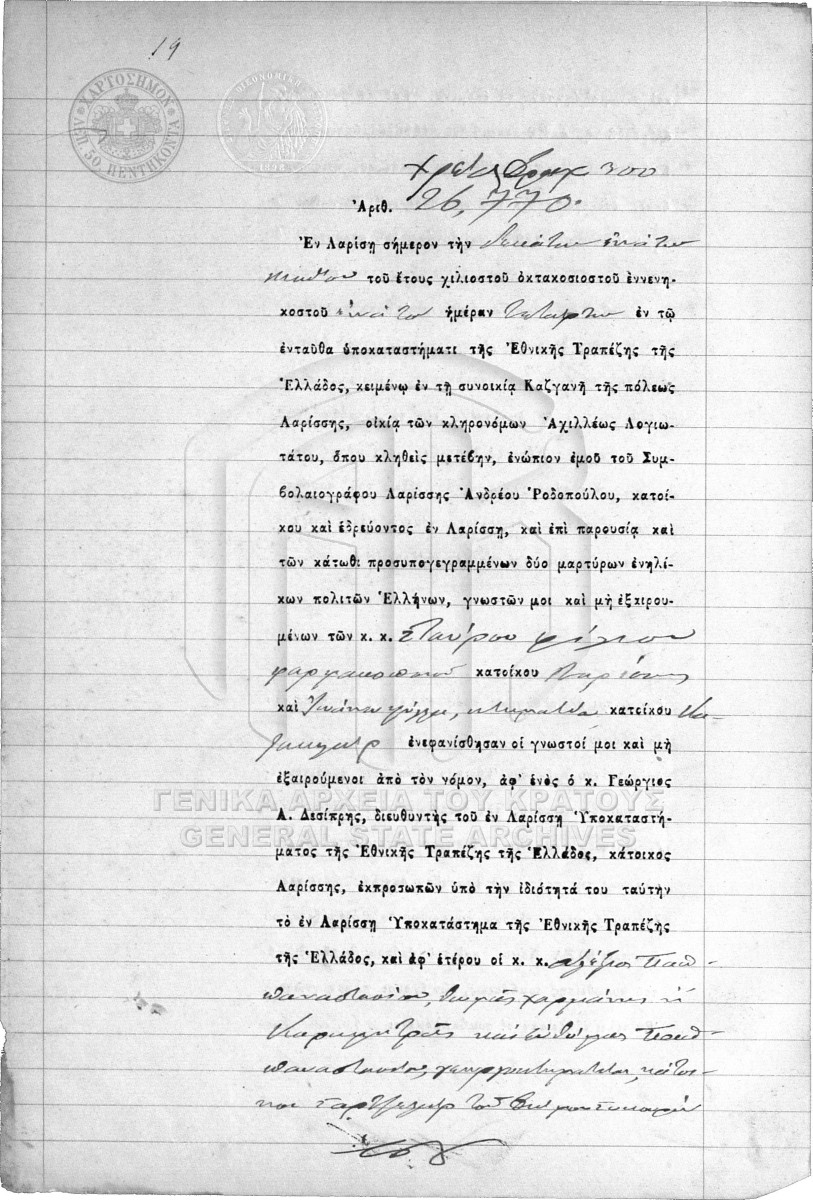 19
ΧΑΡΤΟΣΗΜΟΝ
ΛΕΠ. 50. ΠΕΝΤΗΚΟΝΤΑ
Χρέος Δραχ 300
Ἀριθ. 26,770.
Ἐν Λαρίσῃ σήμερον τὴν δεκάτην ἐνάτην
τοῦ ἔτους χιλιοστοῦ ὀκτακοσιοστοῦ ἐννενη-
κοστοῦ ἐνάτου ἡμέραν Τετάρτην ἐν τῷ
ἐνταῦθα ὑποκαταστήματι τῆς Ἐθνικῆς Τραπέζης τῆς
Ἑλλάδος, κειμένῳ ἐν τῇ συνοικίᾳ Καζγανῆ τῆς πόλεως
Λαρίσσης, οἰκίᾳ τῶν κληρονόμων Ἀχιλλέως Λογιω-
τάτου, ὅπου κληθεὶς μετέβην, ἐνώπιον ἐμοῦ τοῦ Συμ-
βολαιογράφου Λαρίσσης Ἀνδρέου Ῥοδοπούλου, κατοί-
κου καὶ ἑδρεύοντος ἐν Λαρίσσῃ, καὶ ἐπὶ παρουσίᾳ καὶ
τῶν κάτωθι προσυπογεγραμμένων δύο μαρτύρων ἐνηλί-
κων πολιτῶν Ἑλλήνων, γνωστῶν μοι καὶ μὴ ἐξαιρου-
μένων τῶν κ. κ. Σταύρου Φίλιου
φαρμακοποιοῦ κατοίκου Λαρίσσης
καὶ Ἰωάννου κτηματία κατοίκου
ἐνεφανίσθησαν οἱ γνωστοί μοι καὶ μὴ
ἐξαιρούμενοι ἀπὸ τὸν νόμον, ἀφ' ἑνὸς ὁ κ. Γεώργιος
Α. Δεσίπρης, διευθυντὴς τοῦ ἐν Λαρίσσῃ Ὑποκαταστή-
ΓΕΝΙΚΑ ΑΡΧΕΙΑ ΤΟΥ ΚΡΑΤΟΥΣ
GENERAL STATE ARCHIVES
ματος τῆς Ἐθνικῆς Τραπέζης τῆς Ἑλλάδος, κάτοικος
Λαρίσσης, ἐκπροσωπῶν ὑπὸ τὴν ἰδιότητά του ταύτην
τὸ ἐν Λαρίσσῃ Ὑποκατάστημα τῆς Ἐθνικῆς Τραπέζης
τῆς Ἑλλάδος, καὶ ἀφ' ἑτέρου οἱ κ. κ. Ἀλέξιος Παπ-
παναστασίου, Θωμᾶς
Παπ-
παναστασίου, κάτοι-
κοι τοῦ